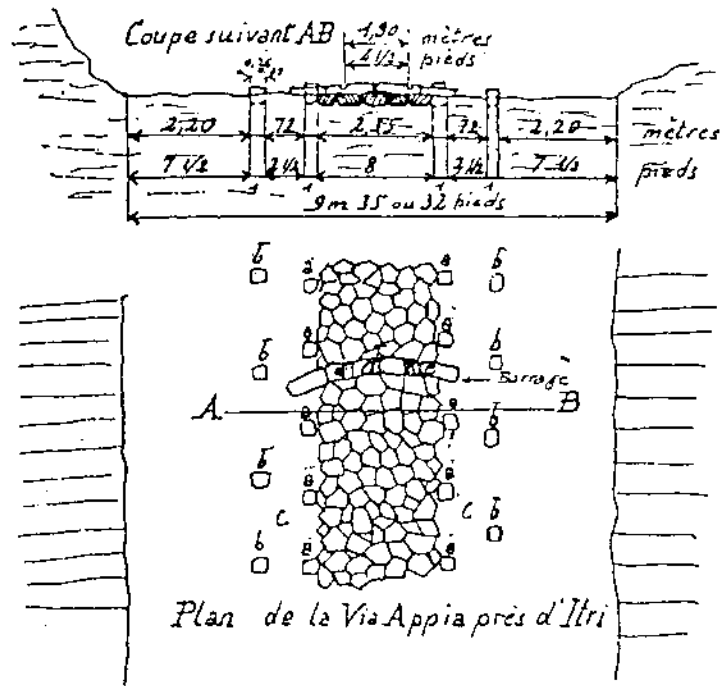 Coupe suivant AB
1,30 mètres
4 1/2 pieds
2,20 72 2,35 72 2,20 mètres
7 1/2 2 1/2 8 2 1/2 7 1/2 pieds
1 1 1 1
9 m 35 ou 32 pieds
b a a b
b a a b
Barrage
A B
a a b
b a a
c c b
b a a
Plan de la Via Appia près d'Itri